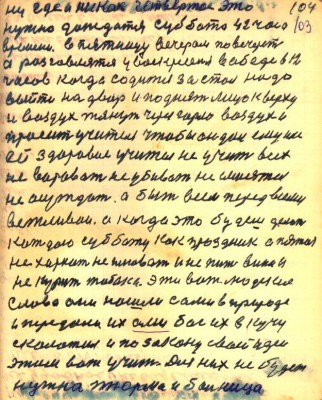 ни еде и никак четвертое это 104
нужно дождатся субботы 42 часа 103
времени. в пятницу вечером повечерят
а разговлятся у воскресеня в обеде в 12
часов когда содитя за стол надо
выйти на двор и поднят лицо к верху
и воздух тянут через горло воздуха
просит учителя чтобы он дал ему или
ей здоровие учителя не учит всех
не воровать не убивать не смеятся
не осуждат. а быт всем перед всеми
вежливои. а когда это будеш делат
каждою субботу как празник а потом
не харкат не плеват и не пит вина и
не курит табака. Эти вот людские
слова они нашли сами в природе
и передали их они бог их в кучу
сколотил и по закону своей идеи
этим вот учит. Для них не будет
нужна тюрма и болница